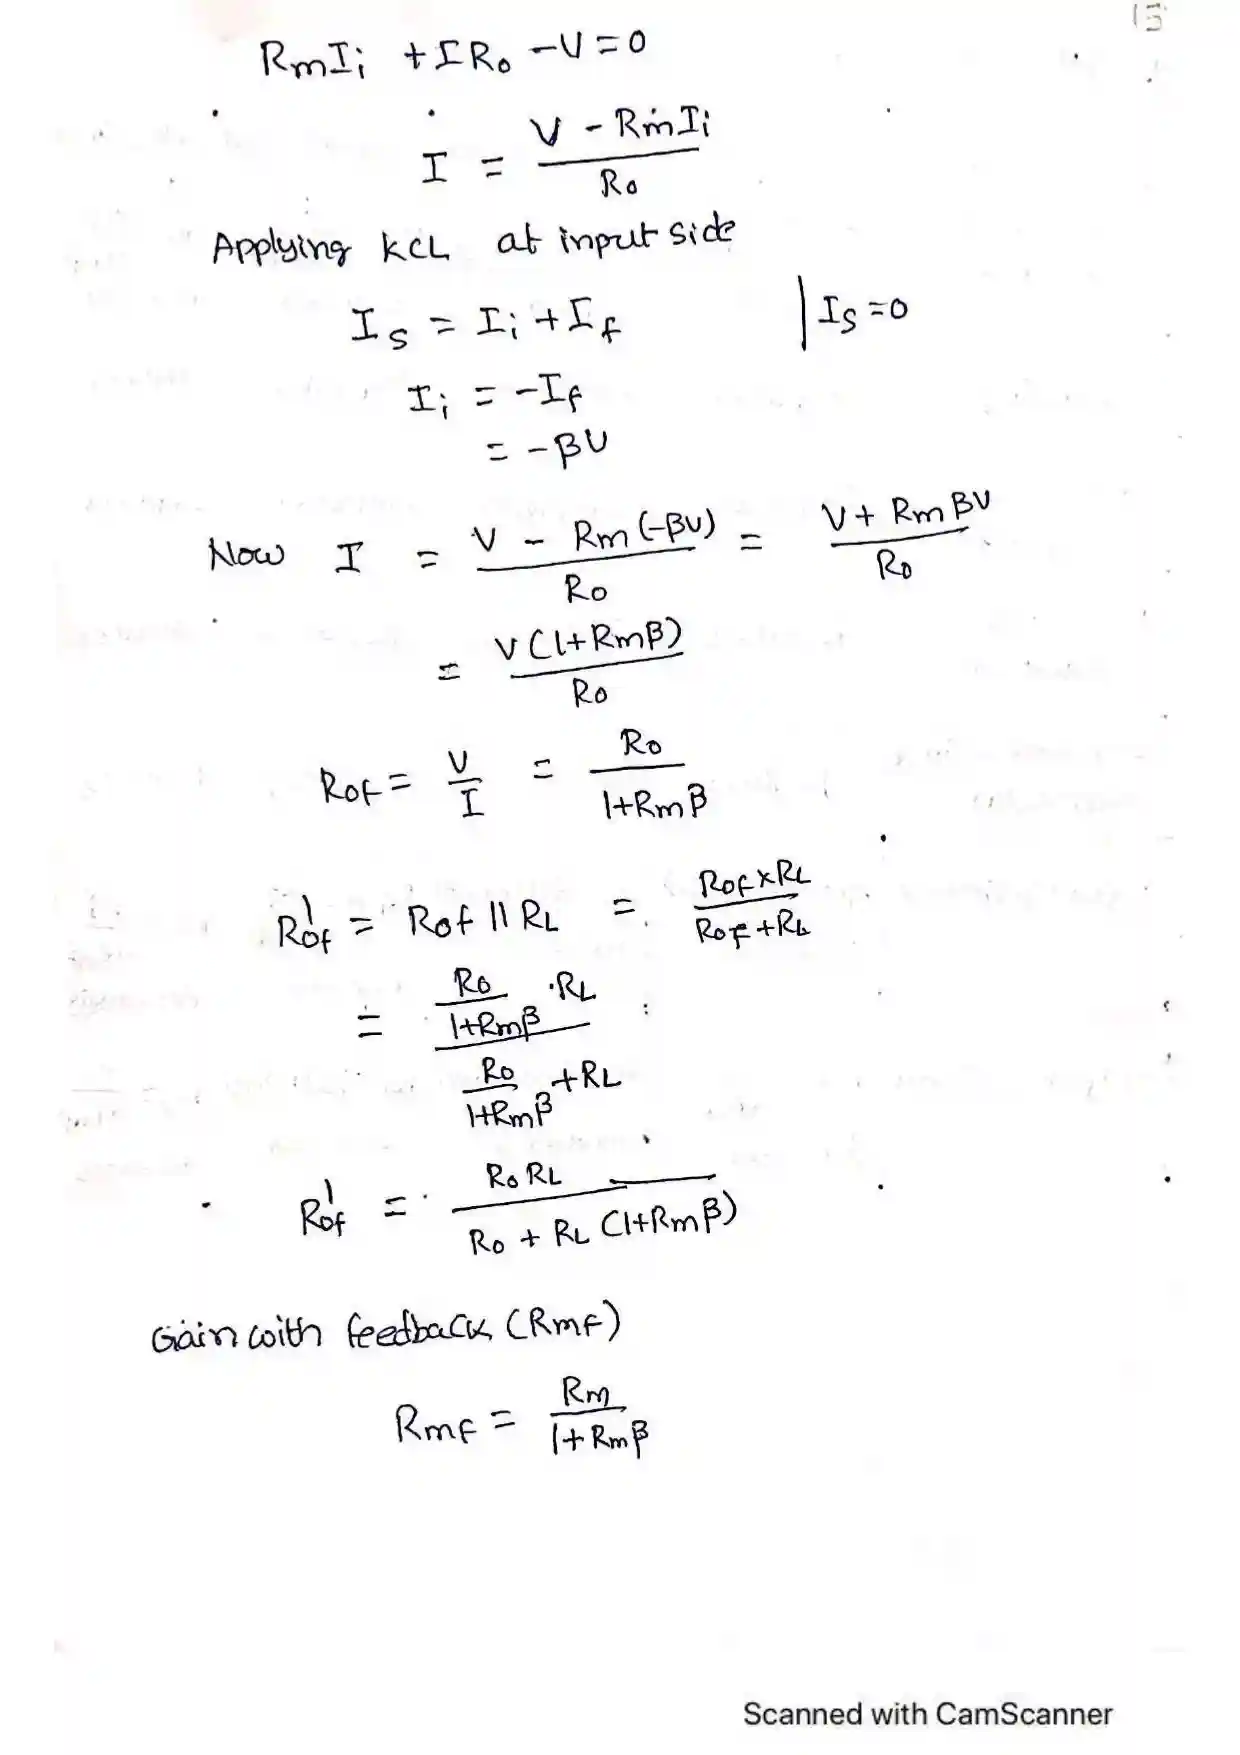 15
RmIi + IRo - V = 0
I = (V - RmIi) / Ro
Applying KCL at input side
Is = Ii + If | Is = 0
Ii = -If
= -βV
Now I = (V - Rm(-βV)) / Ro = (V + RmβV) / Ro
= V(1+Rmβ) / Ro
Rof = V/I = Ro / (1+Rmβ)
Rof' = Rof || RL = (Rof × RL) / (Rof + RL)
= (Ro/(1+Rmβ) · RL) / (Ro/(1+Rmβ) + RL)
Rof' = RoRL / (Ro + RL (1+Rmβ))
Gain with feedback (Rmf)
Rmf = Rm / (1+Rmβ)
Scanned with CamScanner